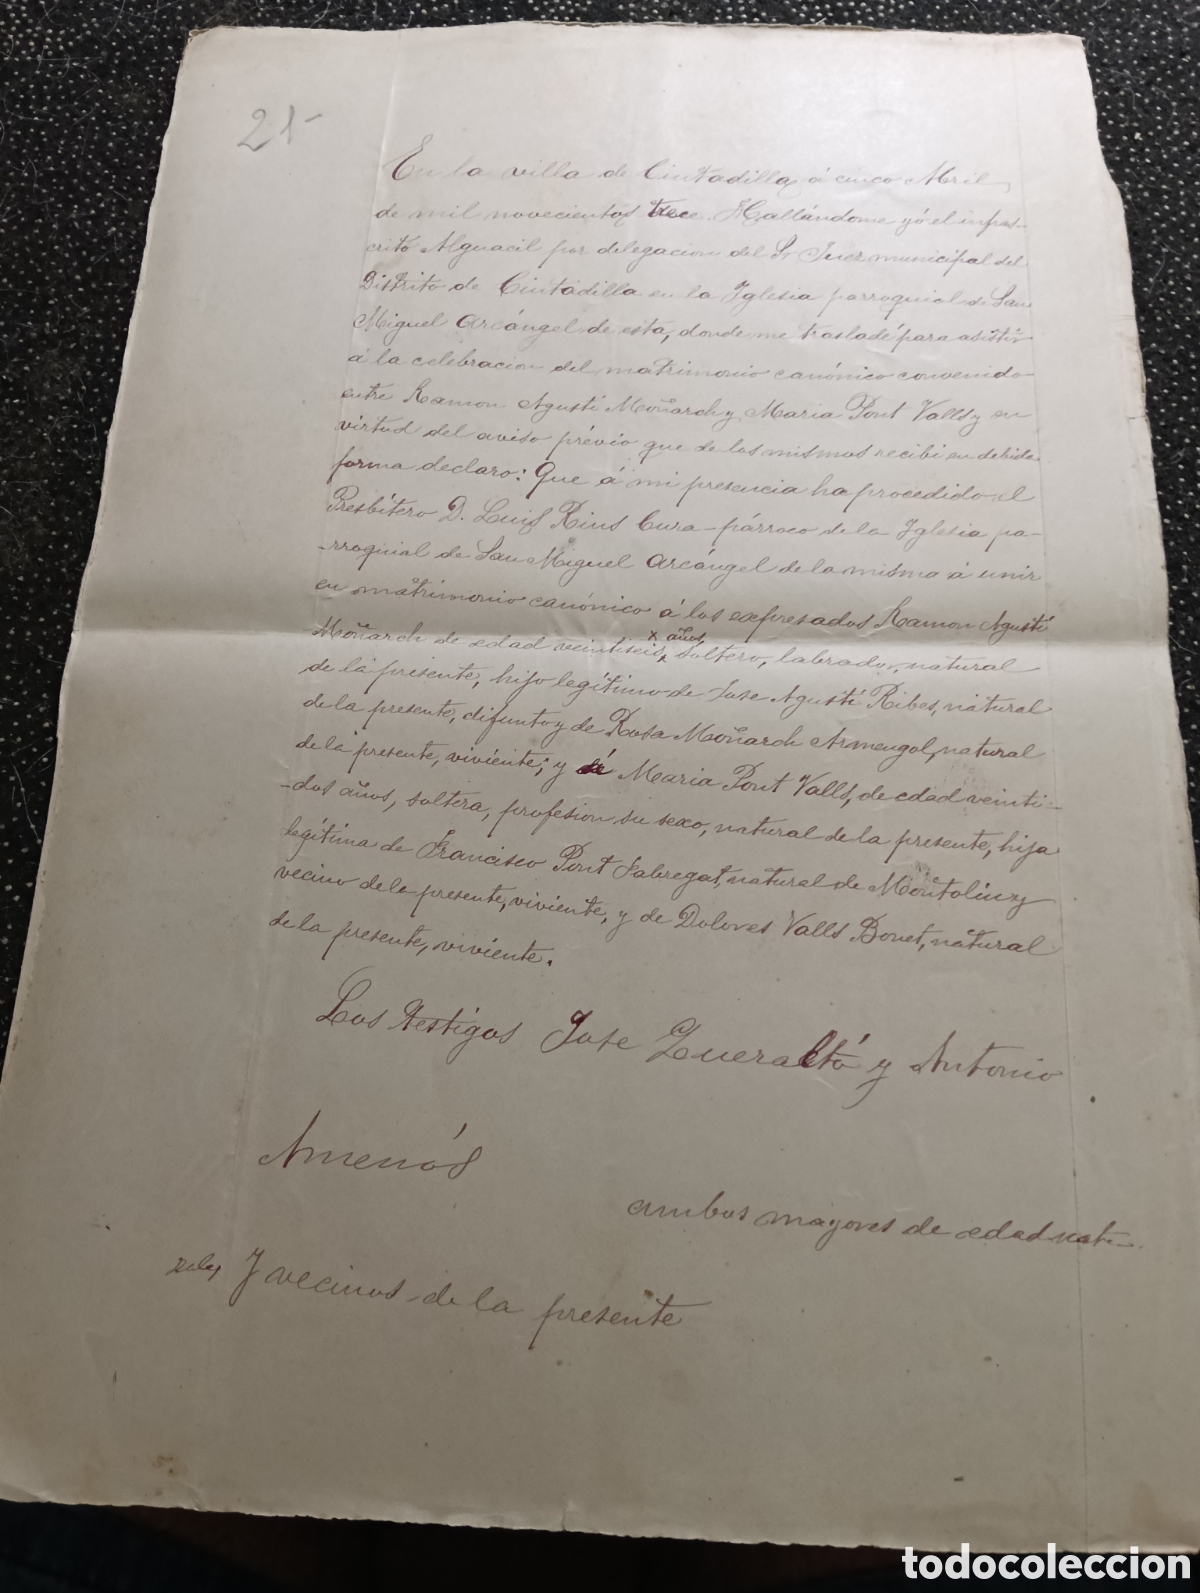 21-
En la villa de Ciutadilla, á cinco Abril
de mil novecientos trece. Hallándome yó el infras-
crito Alguacil por delegacion del Sr Juez municipal del
Distrito de Ciutadilla en la Iglesia parroquial de San
Miguel Arcángel de esta, donde me trasladé para asistir
á la celebracion del matrimonio canónico convenido
entre Ramon Agustí Moñarch y Maria Pont Valls y en
virtud del aviso prévio que de los mismos recibi en debida
forma declaro: Que á mi presencia ha procedido el
Presbítero D. Luis Rius Cura-párroco de la Iglesia pa-
-rroquial de San Miguel Arcángel de la misma á unir
en matrimonio canónico á los expresados Ramon Agustí
x años
Moñarch de edad veintiseis, x soltero, labrador, natural
de la presente, hijo legítimo de Jose Agustí Ribes, natural
de la presente, difunto y de Rosa Moñarch Armengol, natural
de la presente, viviente; y á Maria Pont Valls, de edad veinti-
-dos años, soltera, profesion su sexo, natural de la presente, hija
legítima de Francisco Pont Fabregat, natural de Montoliu y
vecino de la presente, viviente, y de Dolores Valls Bonet, natural
de la presente, viviente.
Los Testigos Jose Queraltó y Antonio
Amenós
ambos mayores de edad natu-
rales y vecinos de la presente
todocoleccion